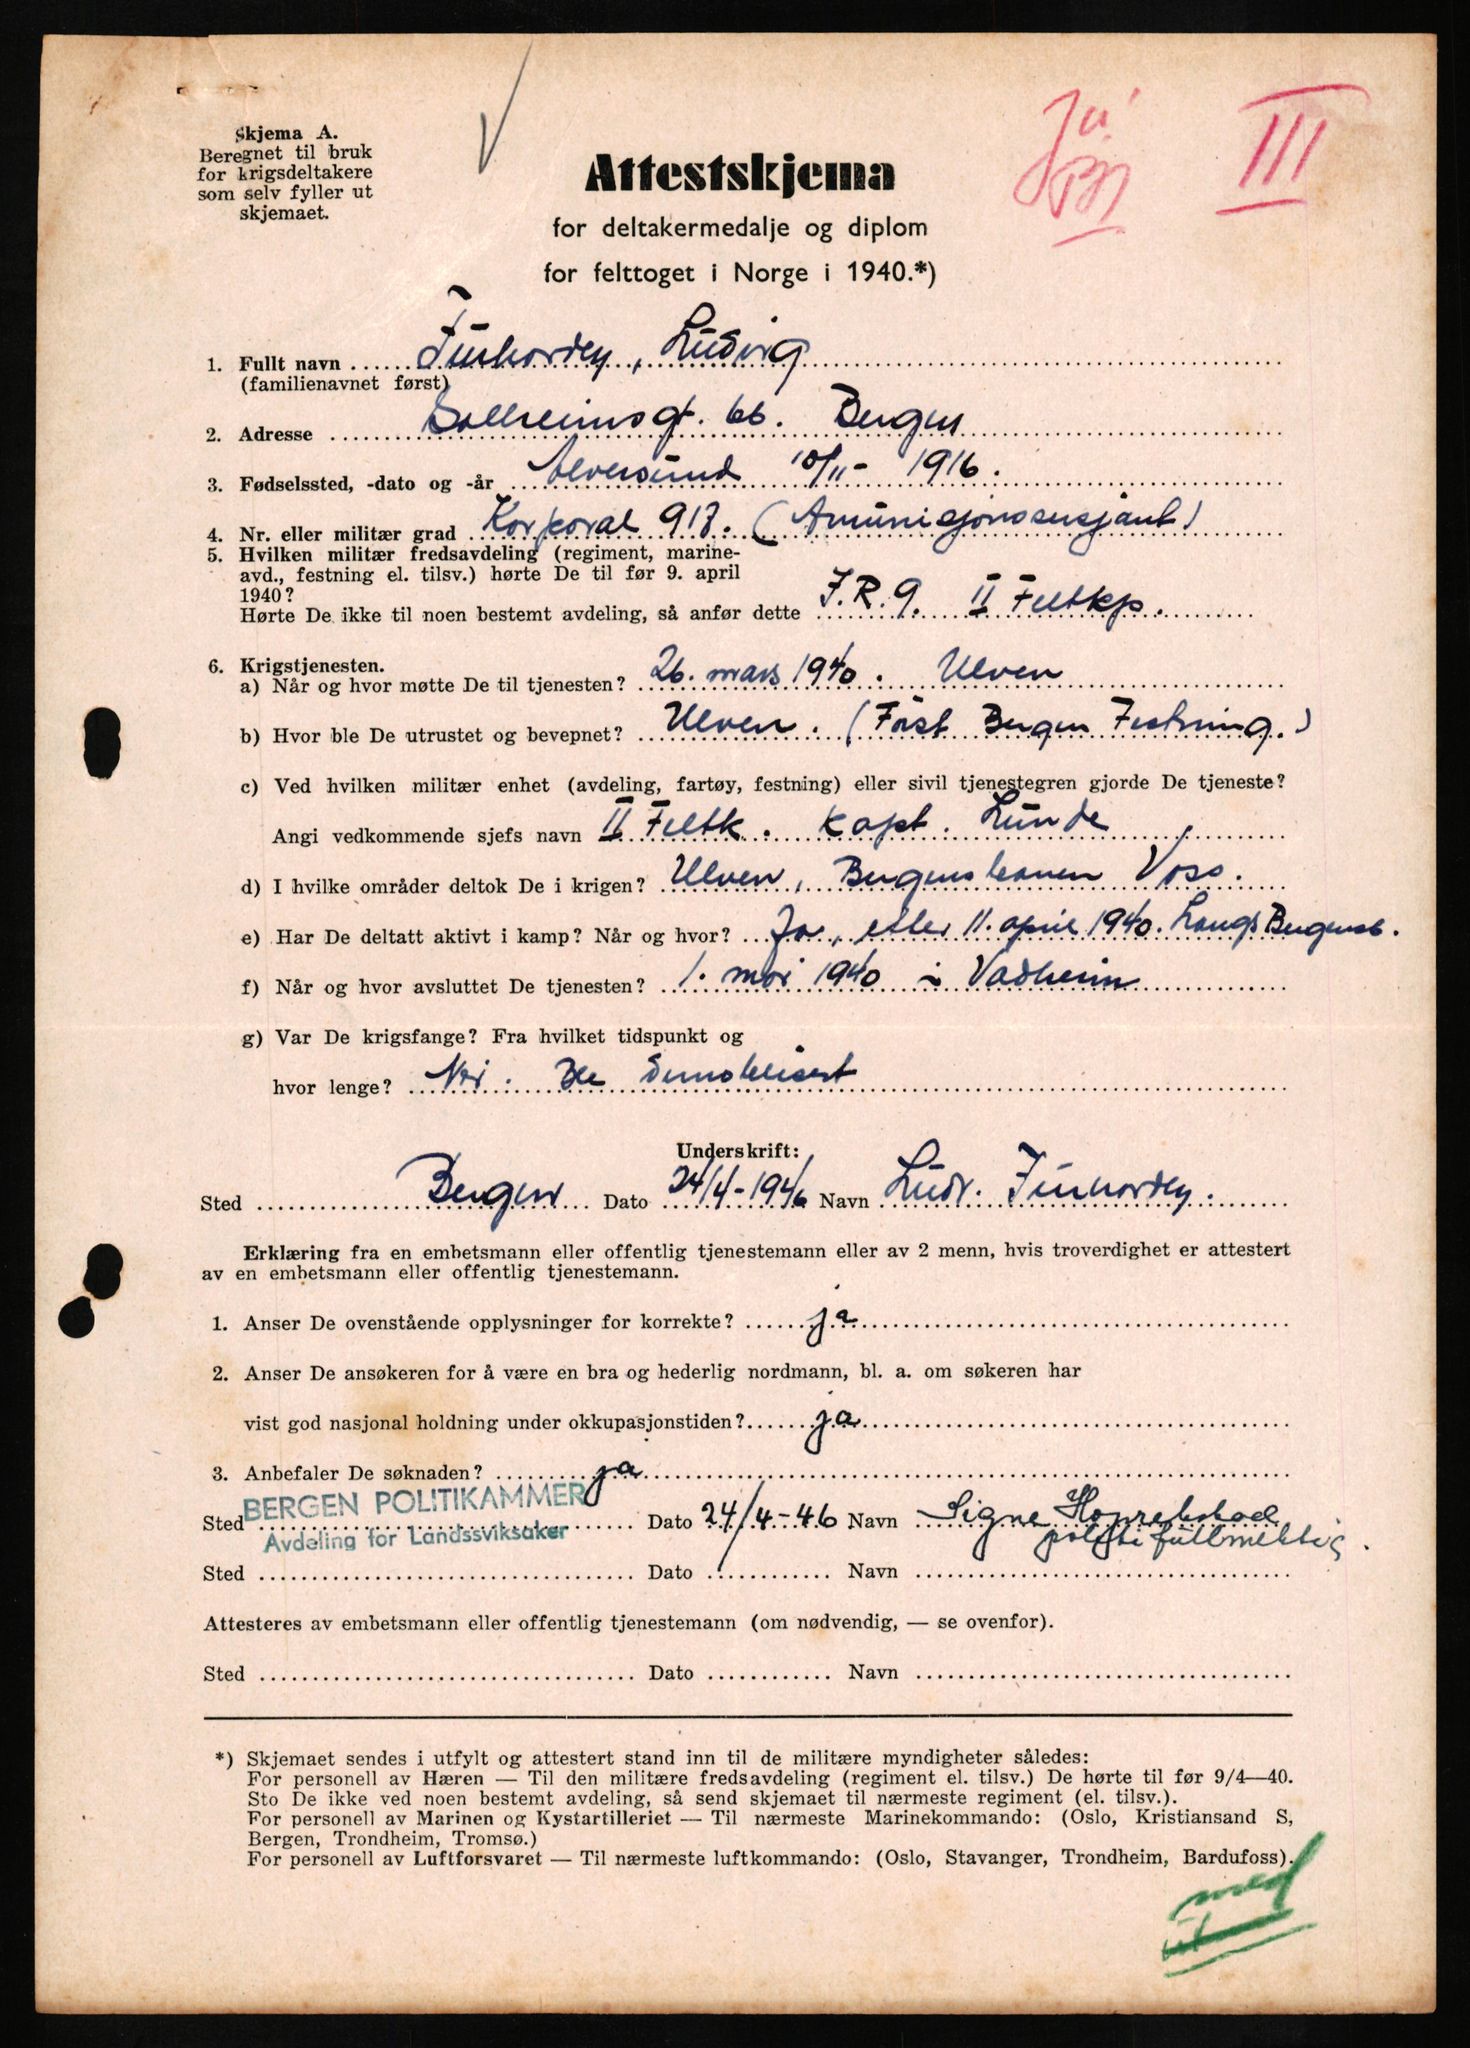 Skjema A.
Beregnet til bruk
for krigsdeltakere
som selv fyller ut
skjemaet.
Ja
III
Attestskjema
for deltakermedalje og diplom
for felttoget i Norge i 1940.*)
1. Fullt navn Ludvig
(familienavnet først)
2. Adresse Solheimsgt. 66. Bergen
3. Fødselssted, -dato og -år Alversund 10/11- 1916.
4. Nr. eller militær grad Korporal 917. (Amunisjonssersjant)
5. Hvilken militær fredsavdeling (regiment, marine-
avd., festning el. tilsv.) hørte De til før 9. april
1940?
Hørte De ikke til noen bestemt avdeling, så anfør dette J.R.9. II Feltkp.
6. Krigstjenesten.
a) Når og hvor møtte De til tjenesten? 26. mars 1940. Ulven
b) Hvor ble De utrustet og bevepnet? Ulven. (Først Bergen Festning.)
c) Ved hvilken militær enhet (avdeling, fartøy, festning) eller sivil tjenestegren gjorde De tjeneste?
Angi vedkommende sjefs navn II Feltk. Kapt. Lunde
d) I hvilke områder deltok De i krigen? Ulven, Bergensbanen Voss.
e) Har De deltatt aktivt i kamp? Når og hvor? Ja, etter 11. april 1940. Langs Bergensb.
f) Når og hvor avsluttet De tjenesten? 1. mai 1940 i Vadheim
g) Var De krigsfange? Fra hvilket tidspunkt og
hvor lenge? Nei. Ble demobilisert
Underskrift:
Sted Bergen Dato 24/4-1946 Navn Ludv.
Erklæring fra en embetsmann eller offentlig tjenestemann eller av 2 menn, hvis troverdighet er attestert
av en embetsmann eller offentlig tjenestemann.
1. Anser De ovenstående opplysninger for korrekte? ja
2. Anser De ansøkeren for å være en bra og hederlig nordmann, bl. a. om søkeren har
vist god nasjonal holdning under okkupasjonstiden? ja
3. Anbefaler De søknaden? ja
BERGEN POLITIKAMMER
Sted Dato 24/4-46 Navn Signe
Avdeling for Landssviksaker politifullmektig.
Sted Dato Navn
Attesteres av embetsmann eller offentlig tjenestemann (om nødvendig, — se ovenfor).
Sted Dato Navn
*) Skjemaet sendes i utfylt og attestert stand inn til de militære myndigheter således:
For personell av Hæren — Til den militære fredsavdeling (regiment el. tilsv.) De hørte til før 9/4—40.
Sto De ikke ved noen bestemt avdeling, så send skjemaet til nærmeste regiment (el. tilsv.).
For personell av Marinen og Kystartilleriet — Til nærmeste Marinekommando: (Oslo, Kristiansand S,
Bergen, Trondheim, Tromsø.)
For personell av Luftforsvaret — Til nærmeste luftkommando: (Oslo, Stavanger, Trondheim, Bardufoss).
med
ut